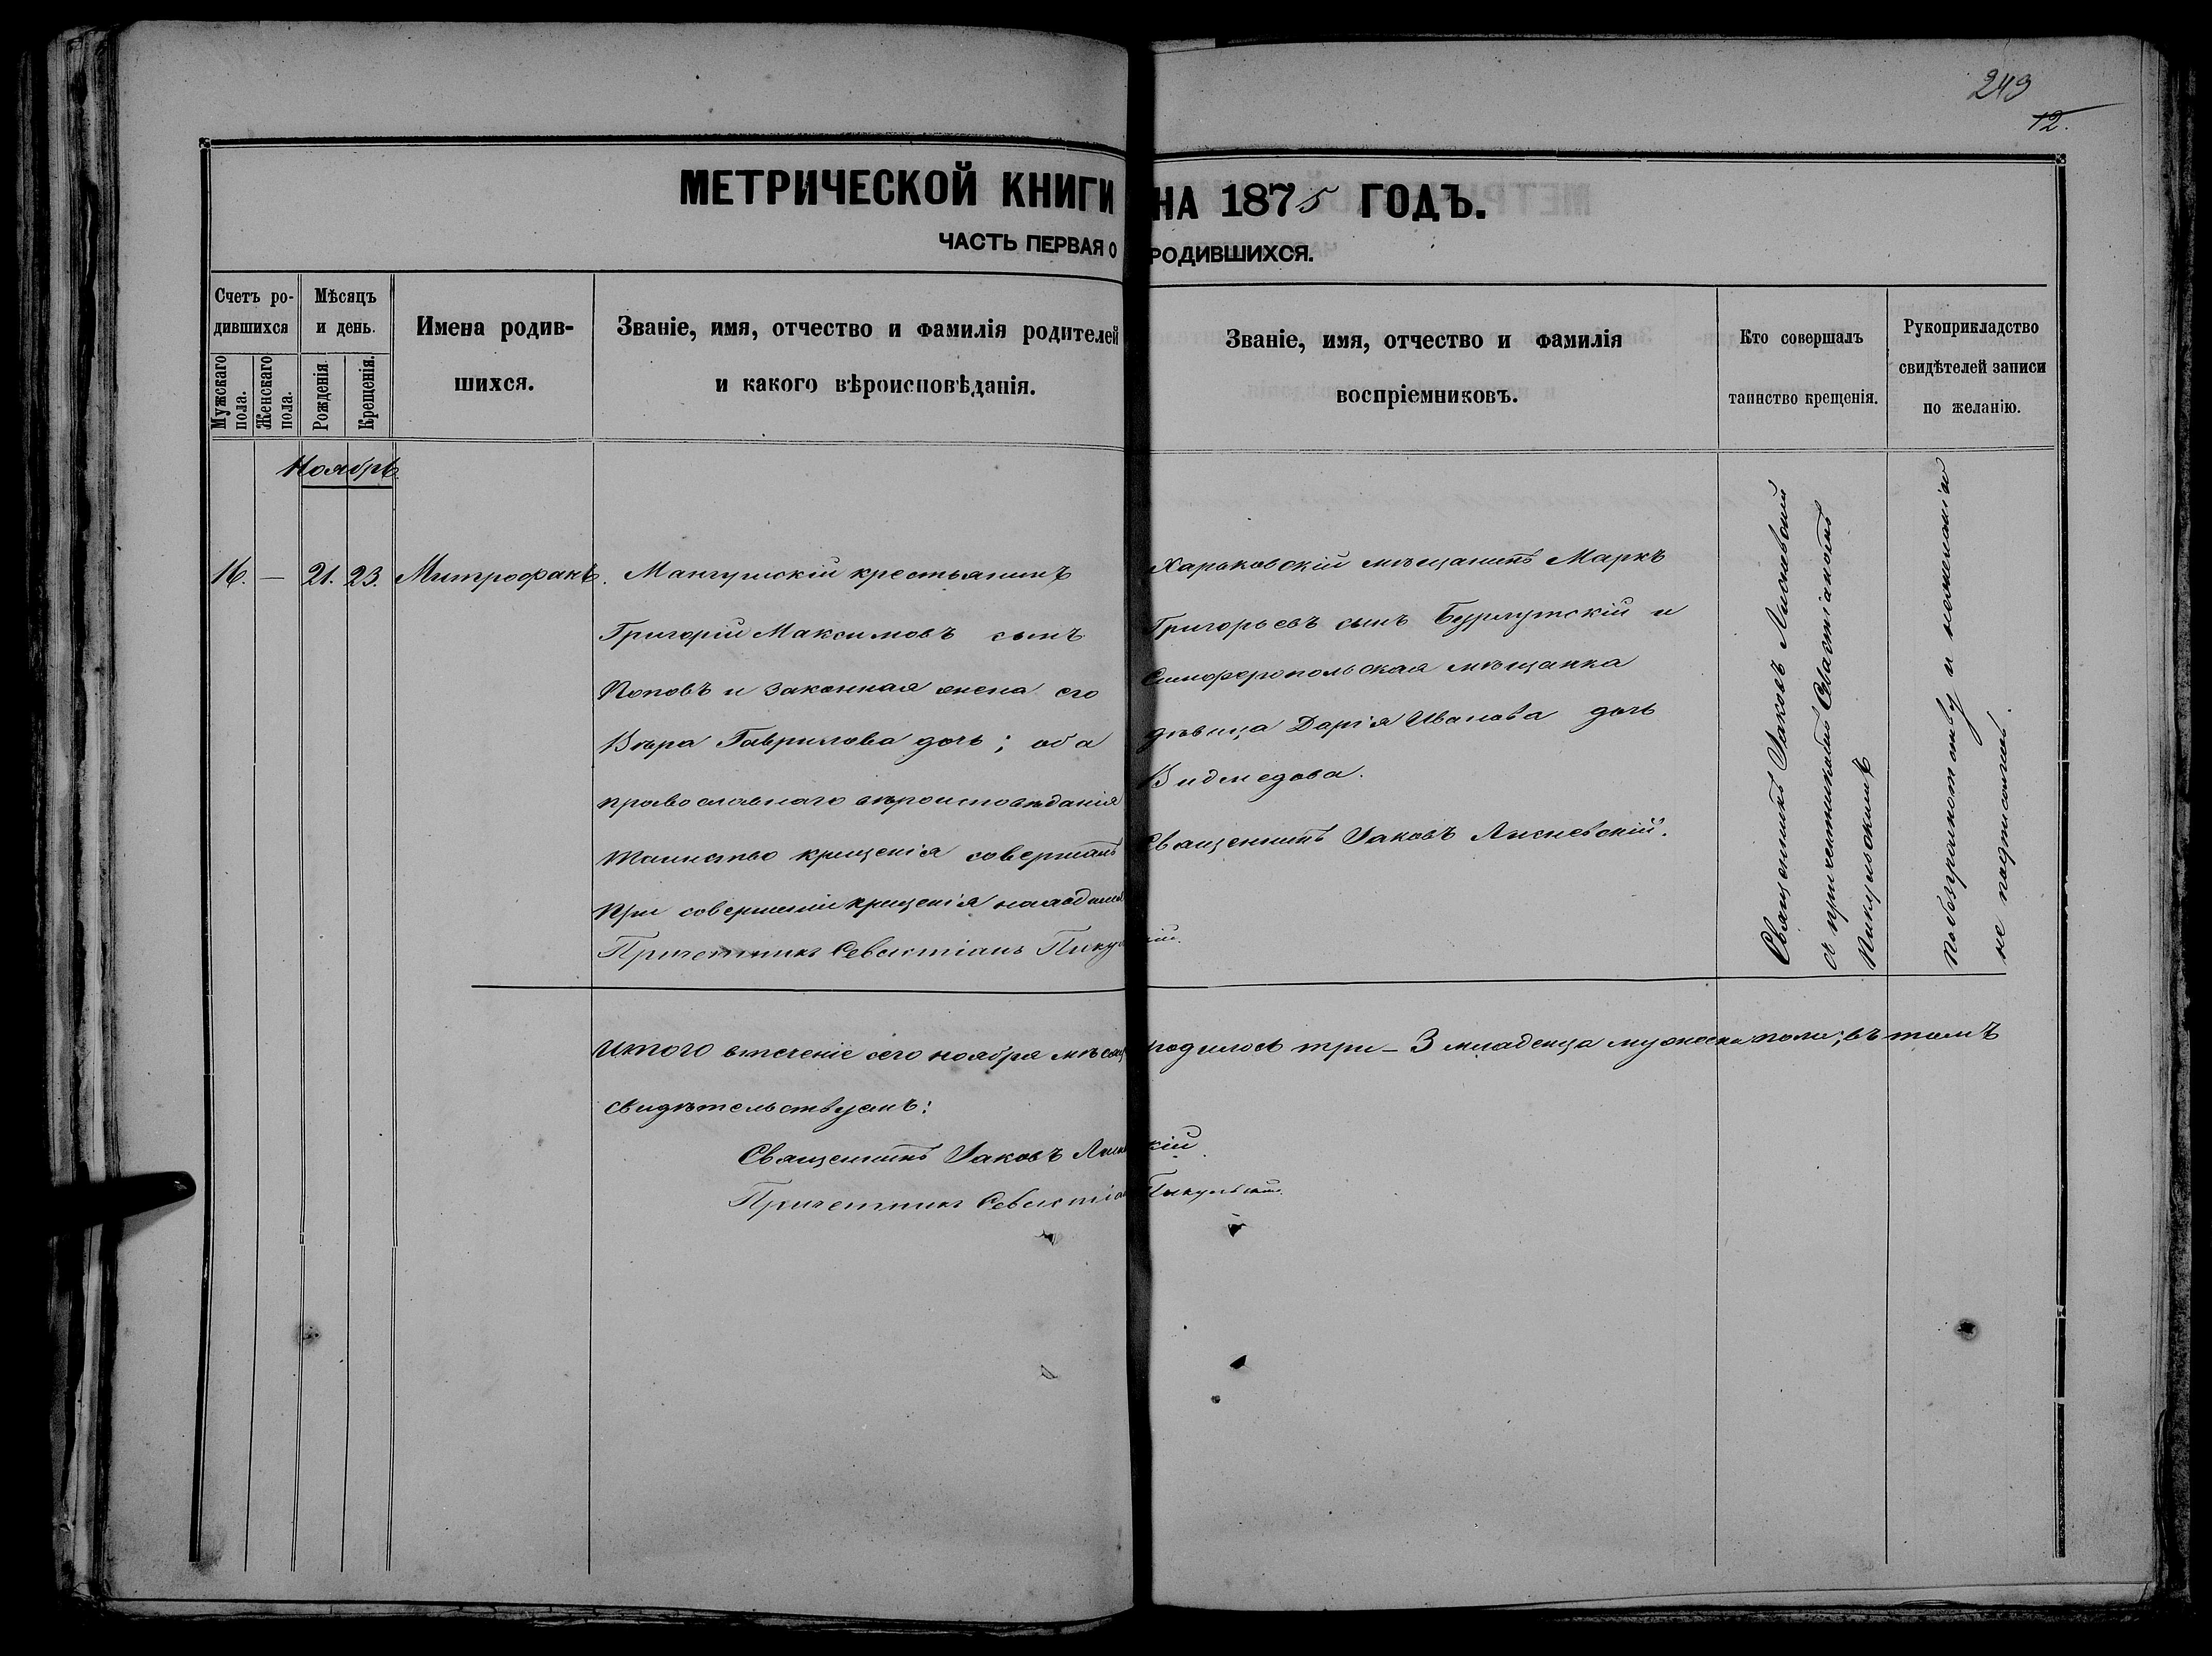 249
12.
МЕТРИЧЕСКОЙ КНИГИ НА 1875 ГОДЪ.
ЧАСТЬ ПЕРВАЯ О РОДИВШИХСЯ.
Счетъ ро-
дившихся
Мужскаго
пола.
Женскаго
пола.
Мѣсяцъ
и день.
Рожденія
Крещенія.
Имена родив-
шихся.
Званіе, имя, отчество и фамилія родителей
и какого вѣроисповѣданія.
Званіе, имя, отчество и фамилія
воспріемниковъ.
Кто совершалъ
таинство крещенія.
Рукоприкладство
свидѣтелей записи
по желанію.
Ноябрь
16. — 21. 23. Митрофанъ.
Мангушскій крестьянинъ
Григорій Максимовъ сынъ
Поповъ и законная жена его
Вѣра Гаврилова дочь; оба
православнаго вѣроисповѣданія
Таинство крещенія совершалъ
При совершеніи крещенія находился
Причетникъ Севастіанъ
Харьковскій мѣщанинъ Маркъ
Григорьевъ сынъ Бурлутскій и
Симферопольская мѣщанка
дѣвица Дарія Иванова дочь
Видмедова.
Священникъ Іаковъ Лисневскій.
Священникъ Іаковъ Лисневскій
съ причетникомъ Севастіаномъ
Пикульскимъ
По безграмотству и нежеланію
не подписались.
Итого втеченіе сего ноября родилось три – 3 младенца мужеска пола; въ томъ
свидѣтельствуемъ:
Священникъ Іаковъ
Причетникъ Севастіанъ Пикульскій.